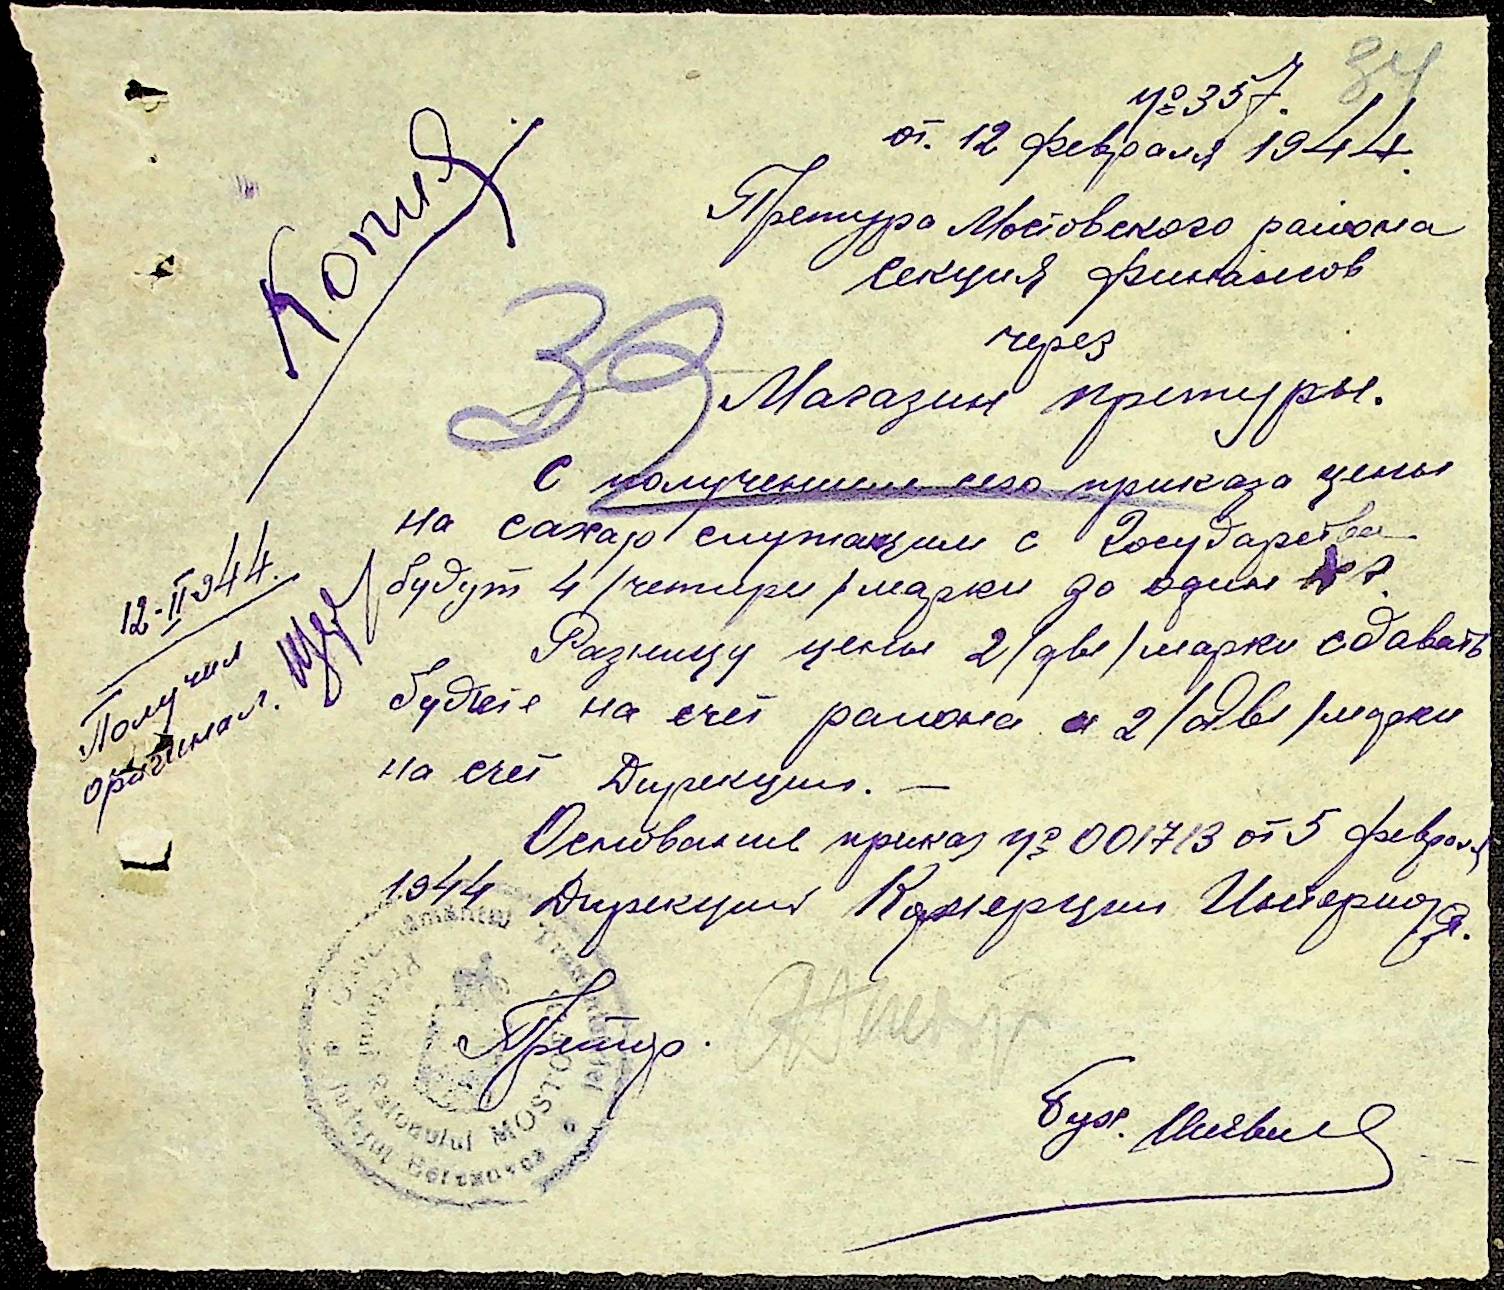 84
№ 357.
от. 12 февраля 1944.
Копия.
Претура Мостовского района
секция финансов
через
Магазин претуры.
39
С получением сего приказа цены
на сахар служащим с Государства
будут 4 /четыри/ марки за один к г.
Разницу цены 2 /две/ марки сдавать
будете на счет района и 2 /две/ марки
на счет Дирекции. —
Основание приказ № 001713 от 5 февраля
1944 Дирекция Комерции Интерная.
12-II 944.
Получил
оригинал.
Претор.
Бух.
Guvernământul Transnistriei
Județul Berezovca
Pretura Raionului MOSTOVOI